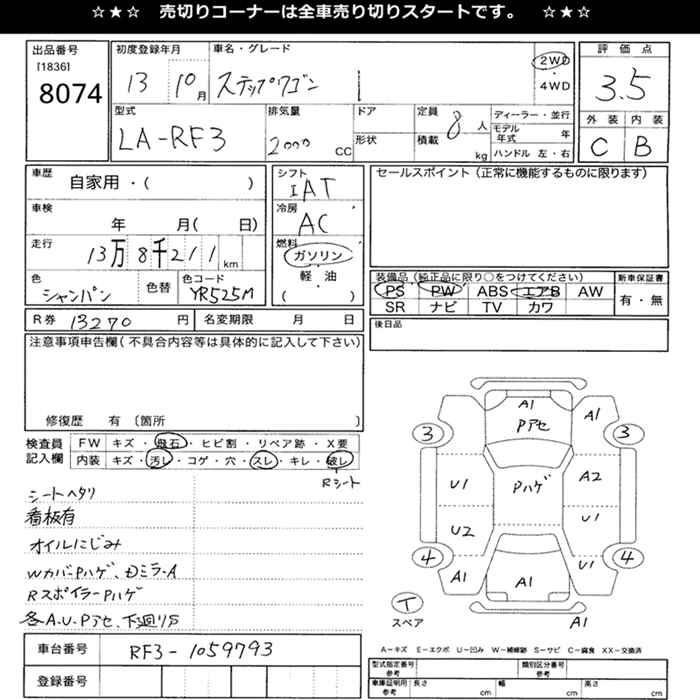 ☆★☆ 売切りコーナーは全車売り切りスタートです。 ☆★☆
出品番号
[1836]
8074
初度登録年月
13 10月
車名・グレード
ステップワゴン
2WD
・
4WD
評価点
3.5
外装 内装
C B
型式
LA-RF3
排気量
2000 CC
ドア
形状
定員
8人
積載
kg
ディーラー・並行
モデル年式 年
ハンドル 左・右
車歴
自家用・( )
車検
年 月( 日)
走行
13万8千211km
色
シャンパン
色替
色コード
YR525M
シフト
IAT
冷房
AC
燃料
ガソリン
軽・油
( )
セールスポイント(正常に機能するものに限ります)
装備品(純正品に限り○をつけてください)
PS PW ABS エアB AW
SR ナビ TV カワ
新車保証書
有・無
後日品
R券 13270 円
名変期限 月 日
注意事項申告欄(不具合内容等は具体的に記入して下さい)
修復歴 有 〔箇所 〕
検査員記入欄
FW キズ・飛石・ヒビ割・リペア跡・X要
内装 キズ・汚レ・コゲ・穴・スレ・キレ・破レ
Rシート
シートヘタリ
看板有
オイルにじみ
WカバーPハゲ、Dミラ-A
RスポイラーPハゲ
各A.U.Pアセ、下廻りS
車台番号
RF3-1059793
登録番号
A1
Pアセ
A1
3
3
U1
Pハゲ
A2
U2
U1
4
4
A1
A1
U1
T
スペア
A1
A-キズ E-エクボ U-凹み W-補修跡 S-サビ C-腐食 XX-交換済
型式指定番号
参考
類別区分番号
参考
車庫証明用
参考
長さ cm
幅 cm
高さ cm